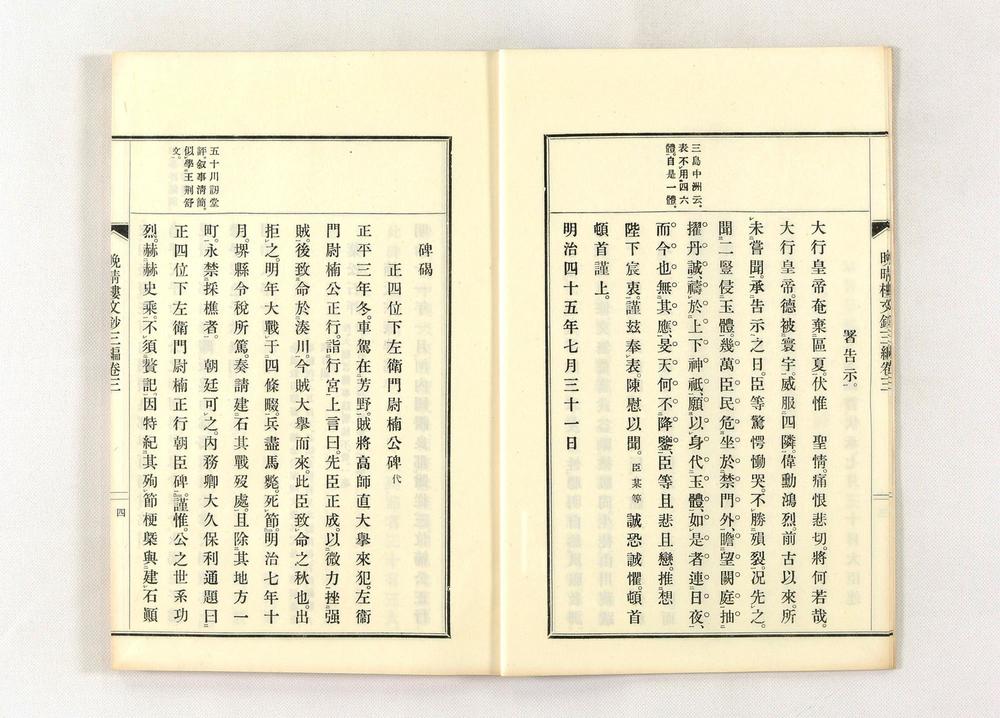 晩晴樓文鈔三編卷三
三島中洲云、
表不用四六
體。自是一體。
署告示。
大行皇帝奄棄區夏。伏惟　聖情。痛恨悲切。將何若哉。
大行皇帝。德被寰宇。威服四隣。偉勳鴻烈。前古以來。所
未嘗聞。承告示之日。臣等驚愕慟哭。不勝殞裂。況先之。
聞二豎侵玉體。幾萬臣民危坐於禁門外、瞻望闕庭抽
擢丹誠、禱於上下神祇、願以身代玉體、如是者連日夜、
而今也無其應、旻天何不降鑒、臣等且悲且戀。推想
陛下宸衷。謹玆奉表。陳慰以聞。臣某等　誠恐誠懼。頓首
頓首謹上。
明治四十五年七月三十一日
五十川訒堂
評。敍事淸簡。
似學王荆舒
文。
碑碣
正四位下左衞門尉楠公碑　代
正平三年冬。車駕在芳野。賊將高師直大擧來犯。左衞
門尉楠公正行。詣行宮上言曰。先臣正成。以微力挫强
賊。後致命於湊川。今賊大擧而來。此臣致命之秋也。出
拒之。明年大戰于四條畷。兵盡馬斃。死節。明治七年十
月。堺縣令稅所篤。奏請建石其戰歿處。且除其地方一
町。永禁採樵者。　朝廷可之。內務卿大久保利通題曰
正四位下左衞門尉楠正行朝臣碑。謹惟。公之世系功
烈。赫赫史乘。不須贅記。因特紀其殉節梗槩與建石顚
晩晴樓文鈔三編卷三
四